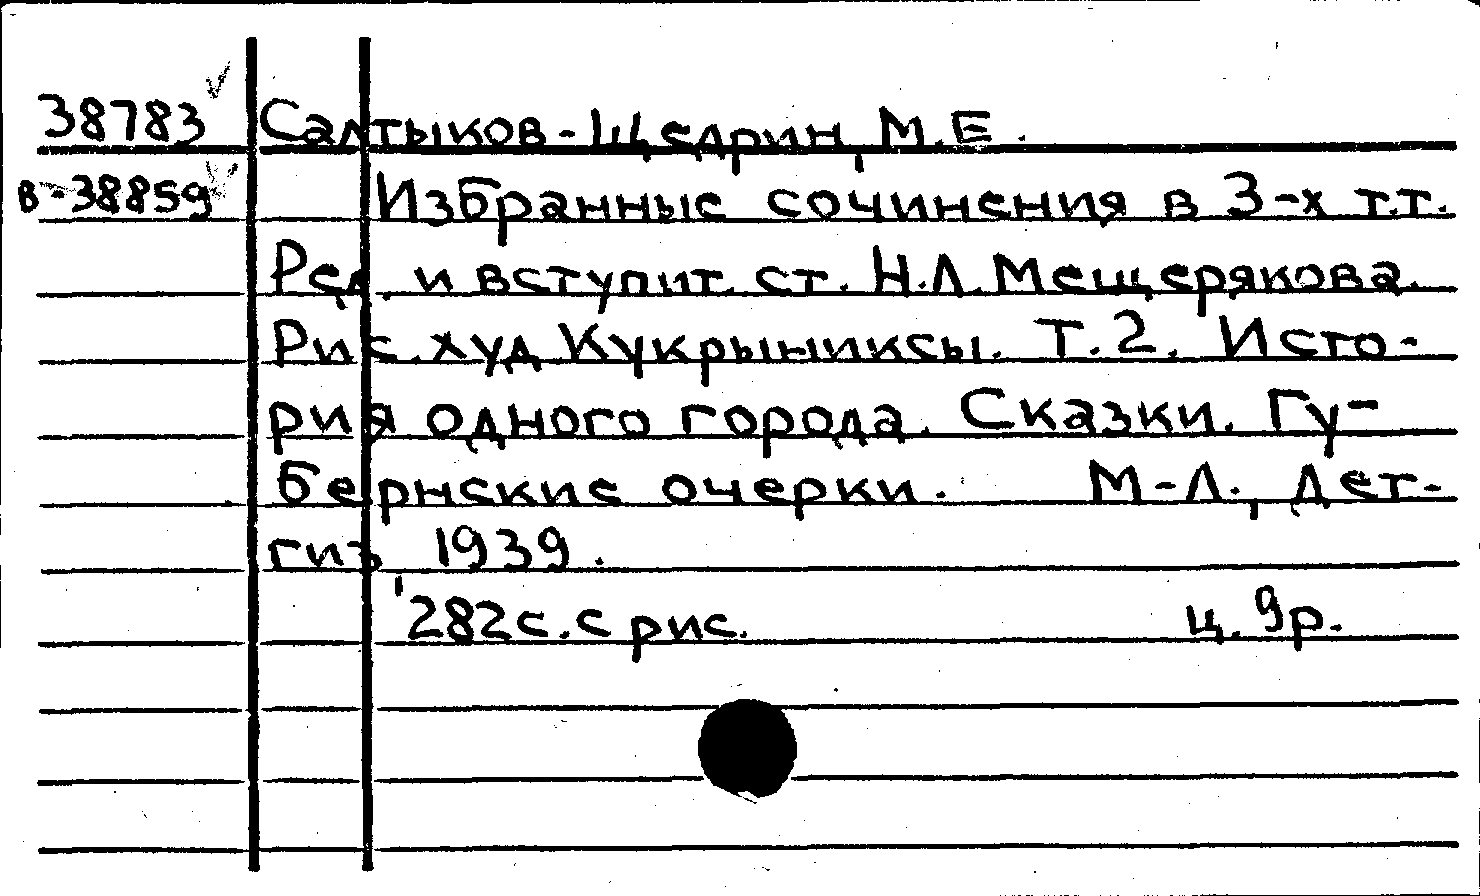 38783 Салтыков-Щедрин, М.Е.
в-38859 Избранные сочинения в 3-х т.т.
Ред. и вступит. ст. Н.Л. Мещерякова.
Рис. худ Кукрыниксы. Т.2. Исто-
рия одного города. Сказки. Гу-
бернские очерки. М-Л., Дет-
гиз, 1939.
282с. с рис. ц. 9р.